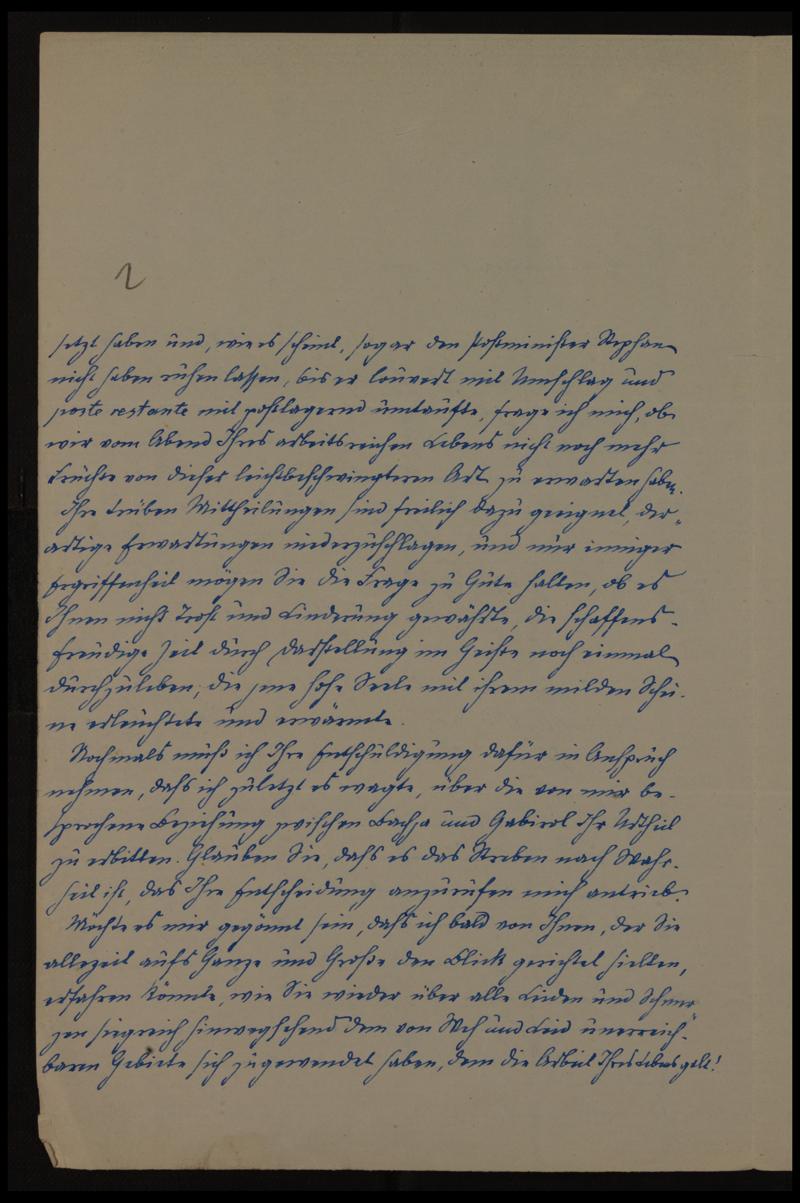 2
setzt haben und, wie es scheint, sogar den Postminister Stephan
nicht haben ruhen lassen, bis er couvert mit Umschlag und
poste restante mit postlagernd umtaufte, frage ich mich, ob
wir vom Abend Ihres arbeitsreichen Lebens nicht noch mehr
Früchte von dieser leichtbeschwingteren Art zu erwarten haben.
Ihre trüben Mittheilungen sind freilich dazu geeignet, der-
artige Erwartungen niederzuschlagen, und nur inniger
Ergriffenheit mögen Sie die Frage zu Gute halten, ob es
Ihnen nicht Trost und Linderung gewährte, die schaffens-
freudige Zeit durch Darstellung im Geiste noch einmal
durchzuleben, die jene hohe Seele mit ihrem milden Schei-
ne erleuchtete und erwärmte.
Nochmals muß ich Ihre Entschuldigung dafür in Anspruch
nehmen, daß ich zuletzt es wagte, über die von mir be-
sprochene Beziehung zwischen Bachja und Gabirol Ihr Urtheil
zu erbitten. Glauben Sie, daß es das Streben nach Wahr-
heit ist, das Ihre Entscheidung anzurufen mich antrieb.
Möchte es mir gegönnt sein, daß ich bald von Ihnen, der Sie
allezeit aufs Ganze und Große den Blick gerichtet hielten,
erfahren könnte, wie Sie wieder über alle Leiden und Schmer-
zen siegreich hinwegsehend dem von Weh und Leid unerreich-
baren Gebiete sich zugewendet haben, dem die Arbeit Ihres Lebens galt!